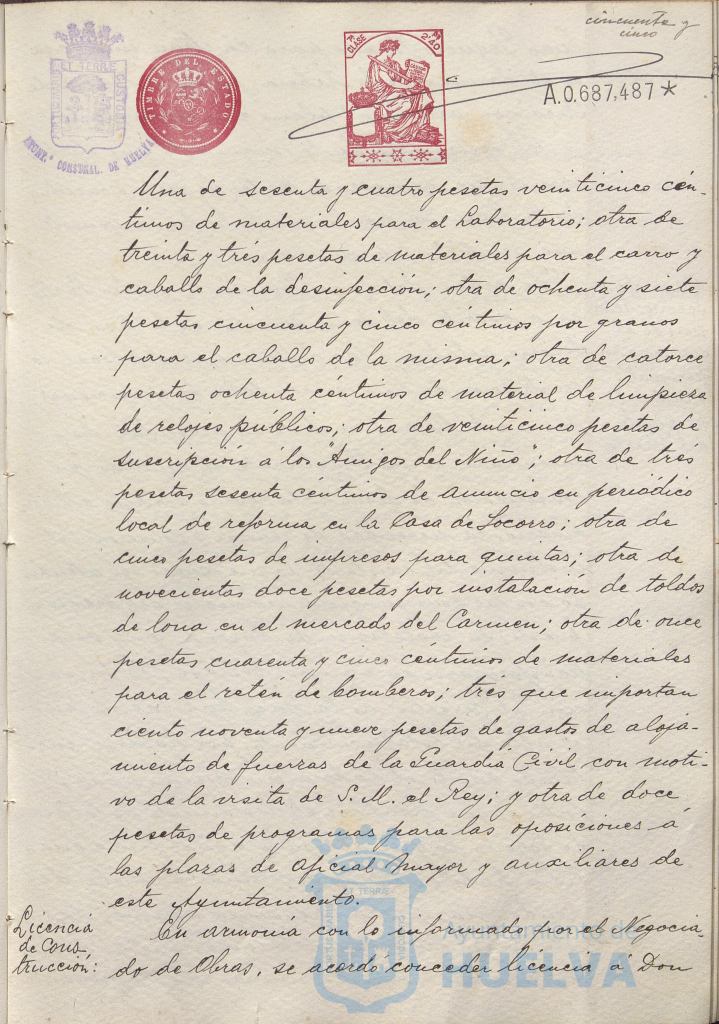 cincuenta y
cinco
TIMBRE DEL ESTADO
7ª CLASE
2'40
A.0.687,487 *
PORTUS MARIS
ET TERRÆ
CUSTODIA
EXCMº. CONSUNAL. DE HUELVA
Una de sesenta y cuatro pesetas veinticinco cén-
timos de materiales para el Laboratorio; otra de
treinta y tres pesetas de materiales para el carro y
caballo de la desinfección; otra de ochenta y siete
pesetas cincuenta y cinco céntimos por granos
para el caballo de la misma; otra de catorce
pesetas ochenta céntimos de material de limpieza
de relojes públicos; otra de veinticinco pesetas de
suscripción á los "Amigos del Niño"; otra de trés
pesetas sesenta céntimos de anuncio en periódico
local de reforma en la Casa de Socorro; otra de
cinco pesetas de impresos para quintas; otra de
novecientas doce pesetas por instalación de toldos
de lona en el mercado del Carmen; otra de once
pesetas cuarenta y cinco céntimos de materiales
para el retén de bomberos; trés que importan
ciento noventa y nueve pesetas de gastos de aloja-
miento de fuerzas de la Guardia Civil con moti-
vo de la visita de S. M. el Rey; y otra de doce
pesetas de programas para las oposiciones á
las plazas de Oficial Mayor y auxiliares de
este Ayuntamiento.
Licencia
de Cons
trucción:
En armonía con lo informado por el Negocia-
do de Obras, se acordó conceder licencia á Don
Ayuntamiento de
HUELVA